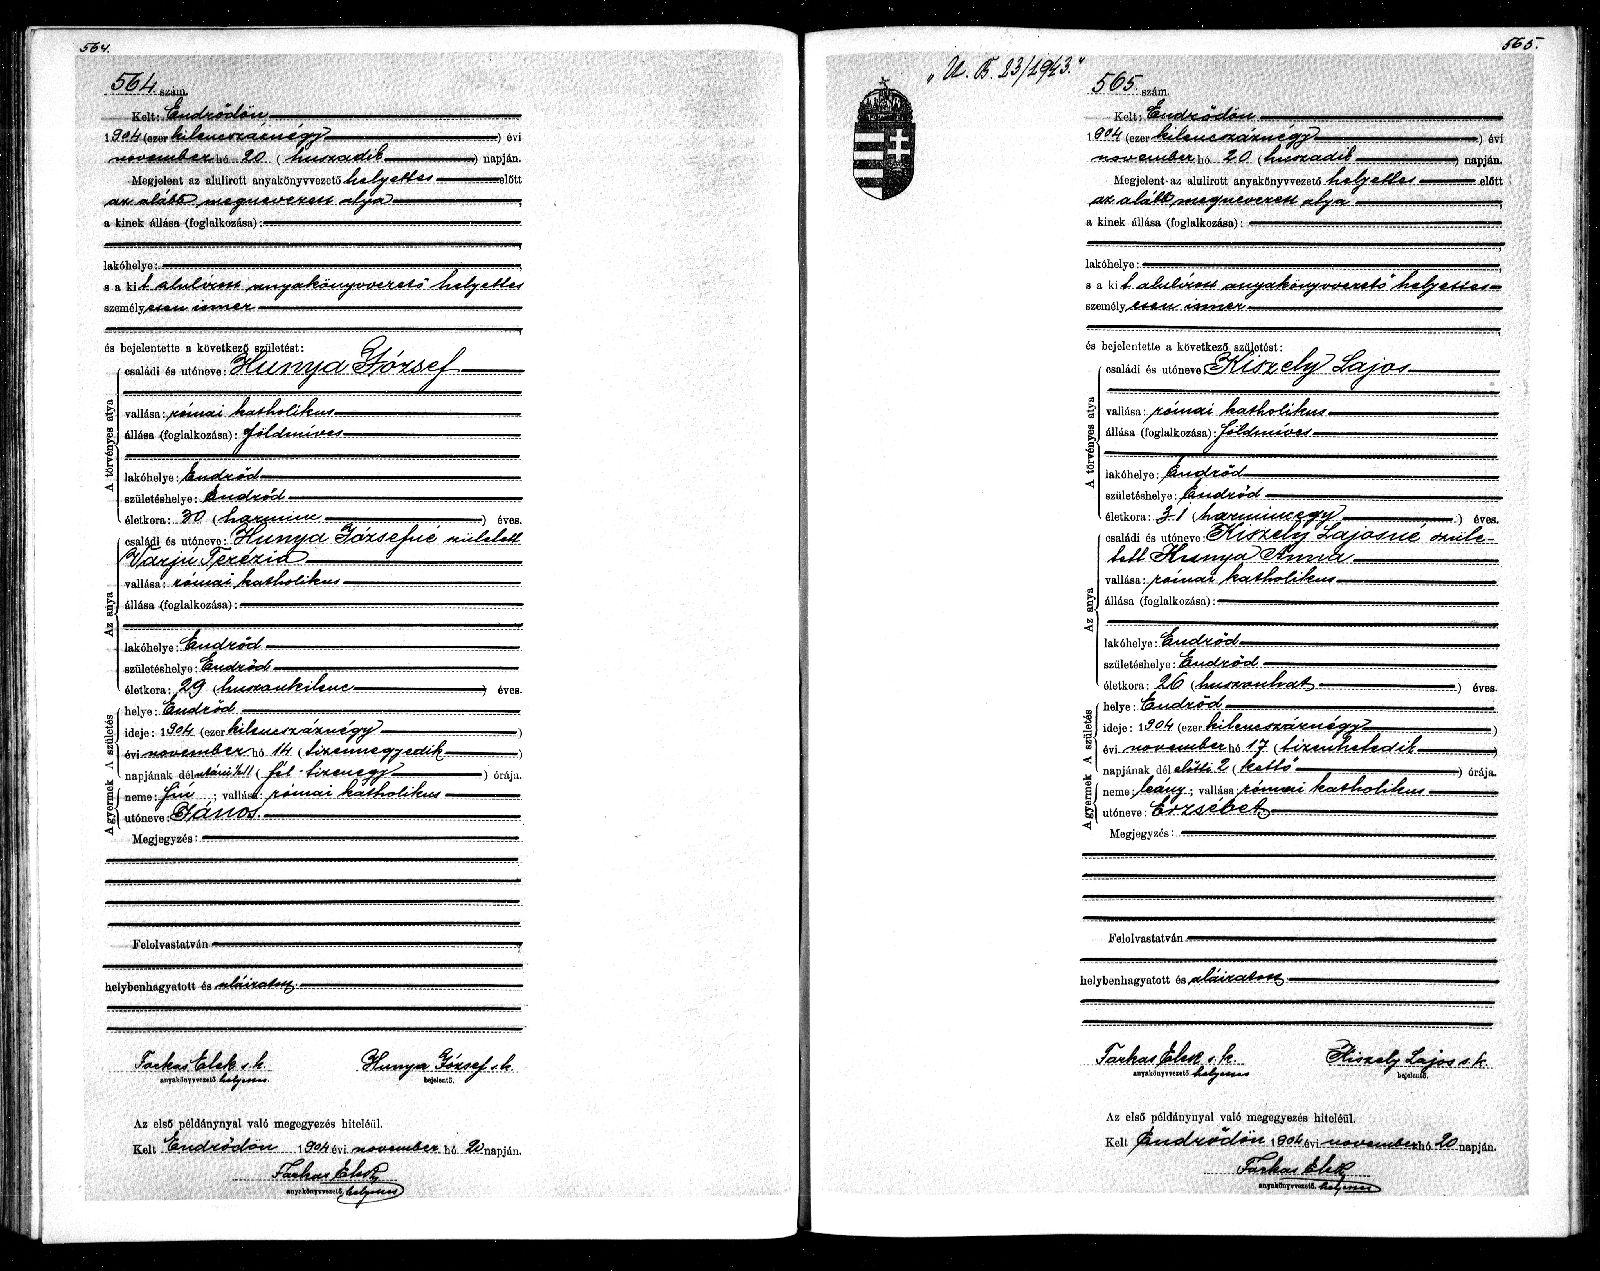 564.
564 szám.
Kelt: Endrődön
1904 (ezer kilencszáznégy) évi
november hó 20 (huszadik) napján.
Megjelent az alulirott anyakönyvvezető helyettes előtt
az alább megnevezett atya,
a kinek állása (foglalkozása):
lakóhelye:
s a kit alulírott anyakönyvvezető helyettes
személyesen ismer
és bejelentette a következő születést:
A törvényes atya
családi és utóneve: Hunya József
vallása: római katholikus
állása (foglalkozása): földmíves
lakóhelye: Endrőd
születéshelye: Endrőd
életkora: 30 (harminc) éves.
Az anya
családi és utóneve: Hunya Józsefné született
Varjú Terézia
vallása: római katholikus
állása (foglalkozása):
lakóhelye: Endrőd
születéshelye: Endrőd
életkora: 29 (huszonkilenc) éves.
A születés
helye: Endrőd
ideje: 1904 (ezer kilencszáznégy)
évi november hó 14 (tizennegyedik)
napjának délutáni ½11 (fél tizenegy) órája.
A gyermek
neme: fiú; vallása: római katholikus
utóneve: János.
Megjegyzés:
Felolvastatván
helybenhagyatott és aláiratott
Farkas Elek s. k. Hunya József s. k.
anyakönyvvezető helyettes bejelentő.
Az első példánynyal való megegyezés hiteléül.
Kelt Endrődön 1904 évi november hó 20 napján.
Farkas Elek
anyakönyvvezető. helyettes
565.
"U. B. 23/1943."
565 szám.
Kelt: Endrődön
1904 (ezer kilencszáznégy) évi
november hó 20 (huszadik) napján.
Megjelent az alulirott anyakönyvvezető helyettes előtt
az alább megnevezett atya,
a kinek állása (foglalkozása):
lakóhelye:
s a kit alulírott anyakönyvvezető helyettes
személyesen ismer
és bejelentette a következő születést:
A törvényes atya
családi és utóneve: Kiszely Lajos
vallása: római katholikus
állása (foglalkozása): földmíves
lakóhelye: Endrőd
születéshelye: Endrőd
életkora: 31 (harmincegy) éves.
Az anya
családi és utóneve: Kiszely Lajosné szüle-
tett Hunya Anna
vallása: római katholikus
állása (foglalkozása):
lakóhelye: Endrőd
születéshelye: Endrőd
életkora: 26 (huszonhat) éves.
A születés
helye: Endrőd
ideje: 1904 (ezer kilencszáznégy)
évi november hó 17. (tizenhetedik)
napjának délelőtti 2 (kettő) órája.
A gyermek
neme: leány; vallása: római katholikus
utóneve: Erzsébet
Megjegyzés:
Felolvastatván
helybenhagyatott és aláiratott
Farkas Elek s. k. Kiszely Lajos s. k.
anyakönyvvezető helyettes bejelentő.
Az első példánynyal való megegyezés hiteléül.
Kelt Endrődön 1904 évi november hó 20 napján.
Farkas Elek
anyakönyvvezető. helyettes